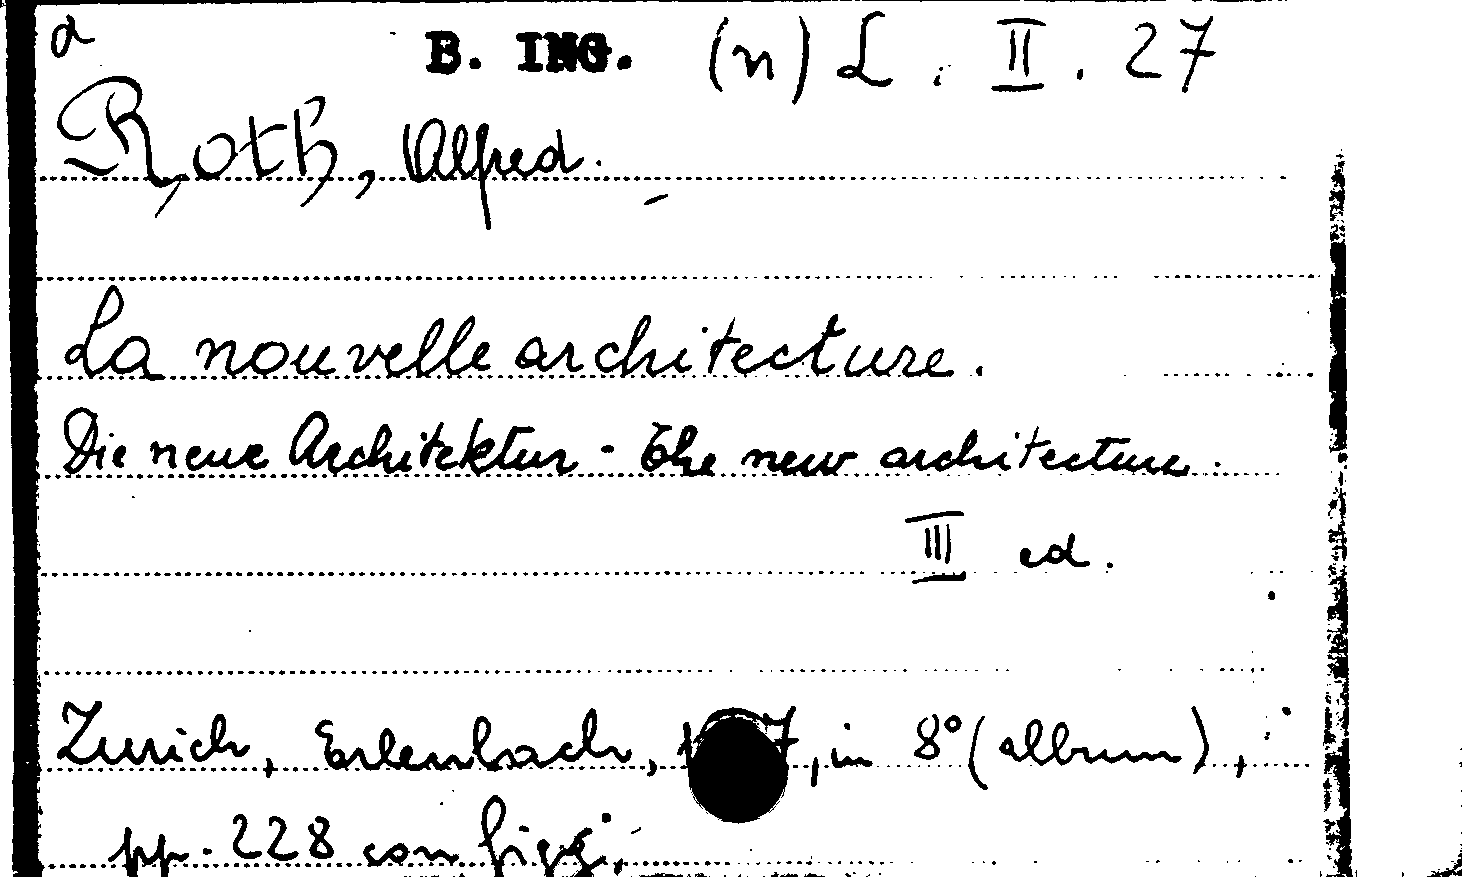 a B. ING. (n) L. II. 27
Roth, Alfred.
La nouvelle architecture.
Die neue Architektur - The new architecture.
III ed.
Zurich, Erlenbach, in 8° (album),
pp. 228 con figg.